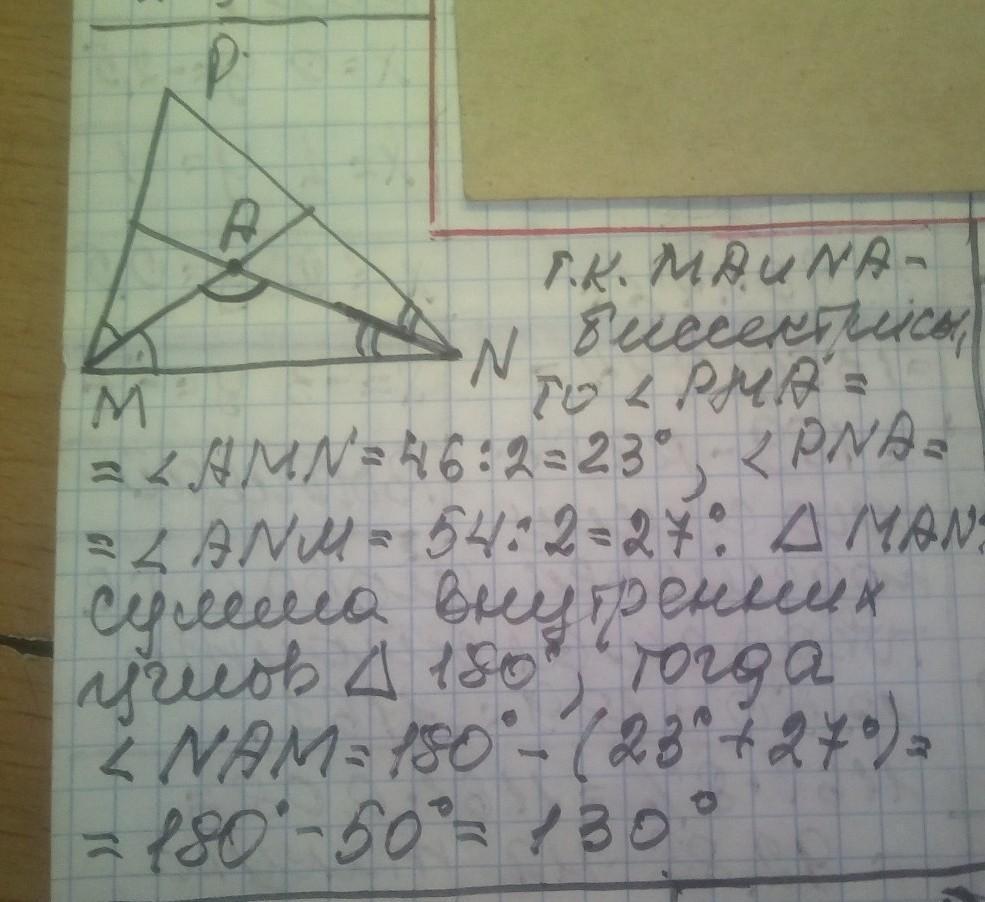 P
A
M
N
Т.К. MA и NA -
биссектрисы,
то < PMA =
= < AMN = 46 : 2 = 23°, < PNA =
= < ANM = 54 : 2 = 27°. Δ MAN:
сумма внутренних
углов Δ 180°, тогда
< NAM = 180° - (23° + 27°) =
= 180° - 50° = 130°